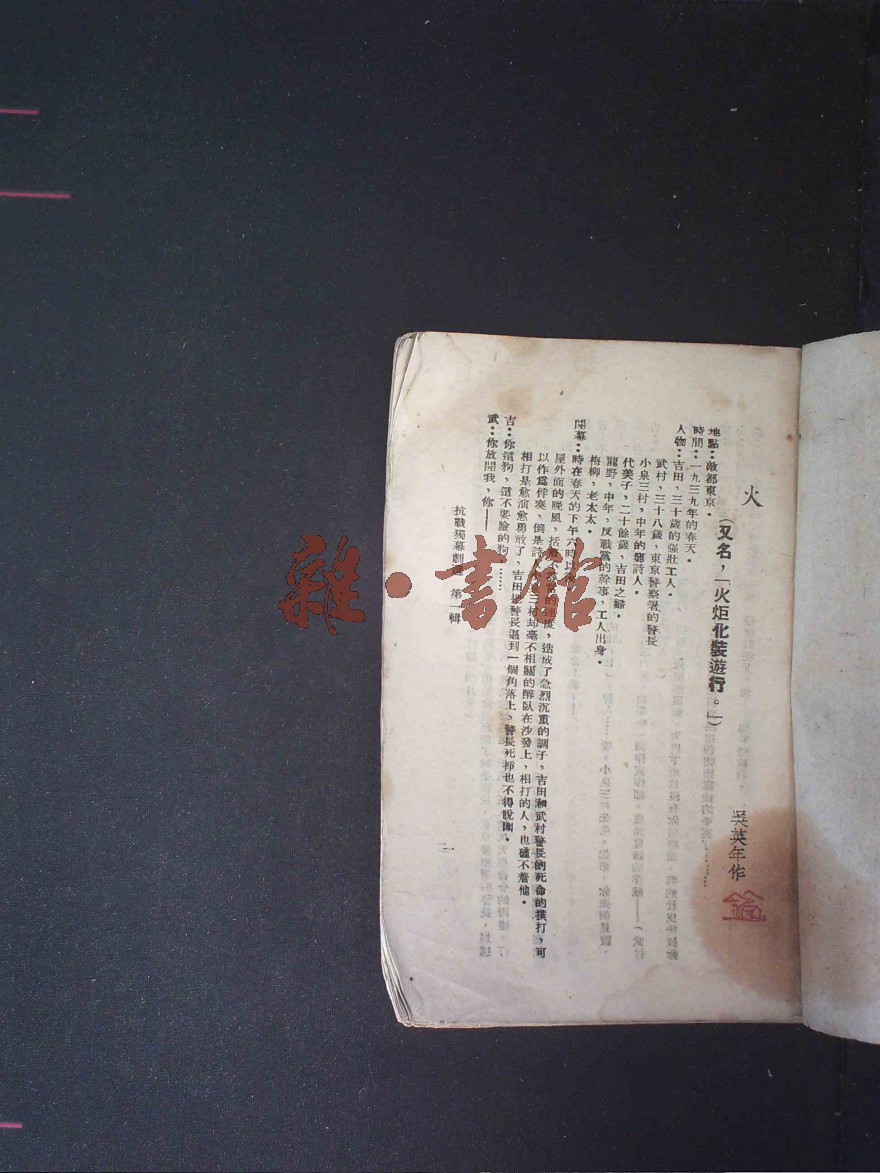 火
(又名，「火炬化裝遊行。」)
吳英年作
地點：敵都東京。
時間：一九三九年的春天。
人物：吉田，三十歲的強壯工人。
武村，三十八歲，東京警察署的警長
小泉三村，中年的窮詩人。
代美子，二十餘歲，吉田之
龍野，中年，反戰黨的幹事，工人出身。
梅柳，老太太。
開幕：時在春天的下午六時以
屋外面的晚風，括 度，造成了急烈沉重的調子，吉田和武村警長的死命的撲打，可
以作爲伴奏，倒是詩 三村却毫不相關的醉臥在沙發上，相打的人，也碰不着他。
相打是愈演愈勇敢了，吉田把警長逼到一個角落上，警長死掙也不得脫開。
吉：你這狗，這不要臉的狗……
武：你放開我，你——
抗戰獨幕劇選 第一輯
雜·書館